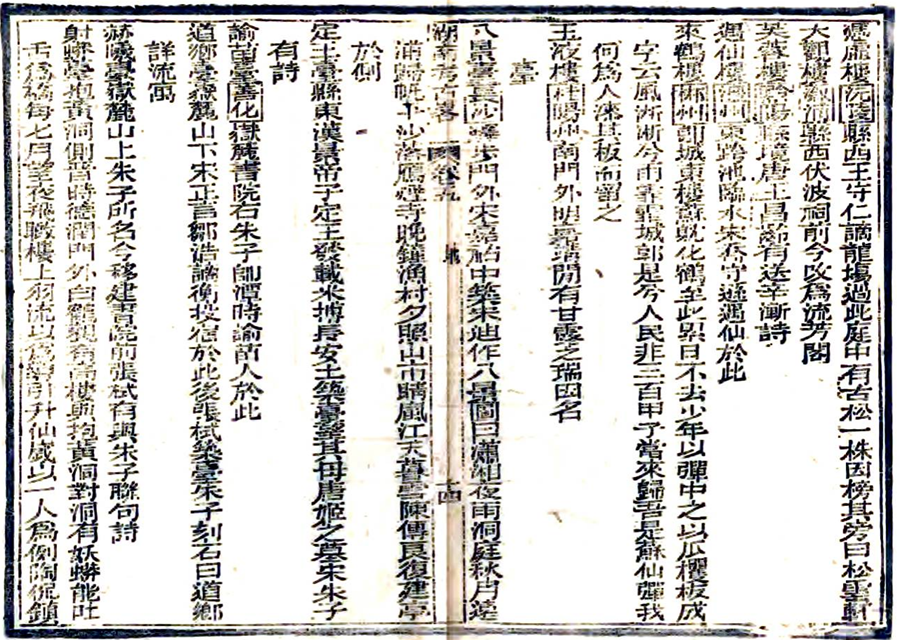 憑虛樓沅陵縣西王守仁謫龍場過此庭中有古松一株因榜其旁曰松雲軒
大觀樓漵浦縣西伏波祠前今改爲流芳閣
芙蓉樓黔陽縣境唐王昌齡有送辛漸詩
遇仙樓 東跨池臨水宋喬守遜遇仙於此
來鶴樓郴州郡城東樓蘇耽化鶴至此累日不去少年以彈中之以爪攫板成
字云風淅淅兮雨霏霏城郭是兮人民非三百甲子當來歸吾是蘇仙彈我
何爲人漆其板而留之
玉液樓桂陽州南門外明 開有甘露之瑞因名
臺
八景臺長沙 步門外宋嘉祐中築宋迪作八景圖曰瀟湘夜雨洞庭秋月遠
浦歸帆平沙落雁煙寺晚鐘漁村夕照山市晴嵐江天暮雪陳傅良復建亭
於側
定王臺縣東漢景帝子定王發載米摶長安土築臺望其母唐姬之墓宋朱子
有詩
諭苗臺善化嶽麓書院右朱子帥潭時諭苗人於此
道鄉臺嶽麓山下宋正言鄒浩謫衡投宿於此後張栻築臺朱子刻石曰道鄉
詳流寓
赫曦臺嶽麓山上朱子所名今移建書院前張栻有與朱子聯句詩
射蟒臺抱黃洞側晉時德潤門外白鶴觀有高樓與抱黃洞對洞有妖蟒能吐
舌爲橋每七月望夜飛聯樓上羽流以爲導引升仙歲以一人爲例陶侃鎮
湖南考古略
卷九
十四